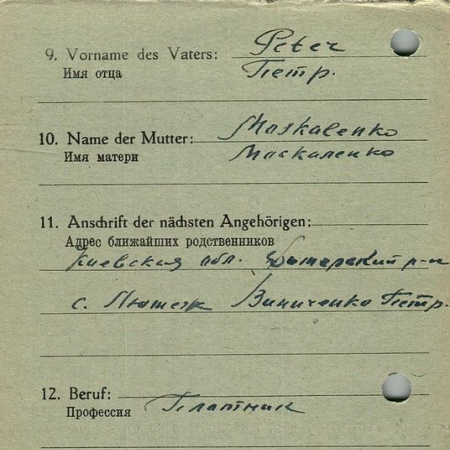 9. Vorname des Vaters: Peter
Имя отца Петр.
10. Name der Mutter: Moskalenko
Имя матери Москаленко
11. Anschrift der nächsten Angehörigen:
Адрес ближайших родственников
Киевская обл. Дымерский р-н
с. Лютеж Виниченко Петр.
12. Beruf:
Профессия Плотник